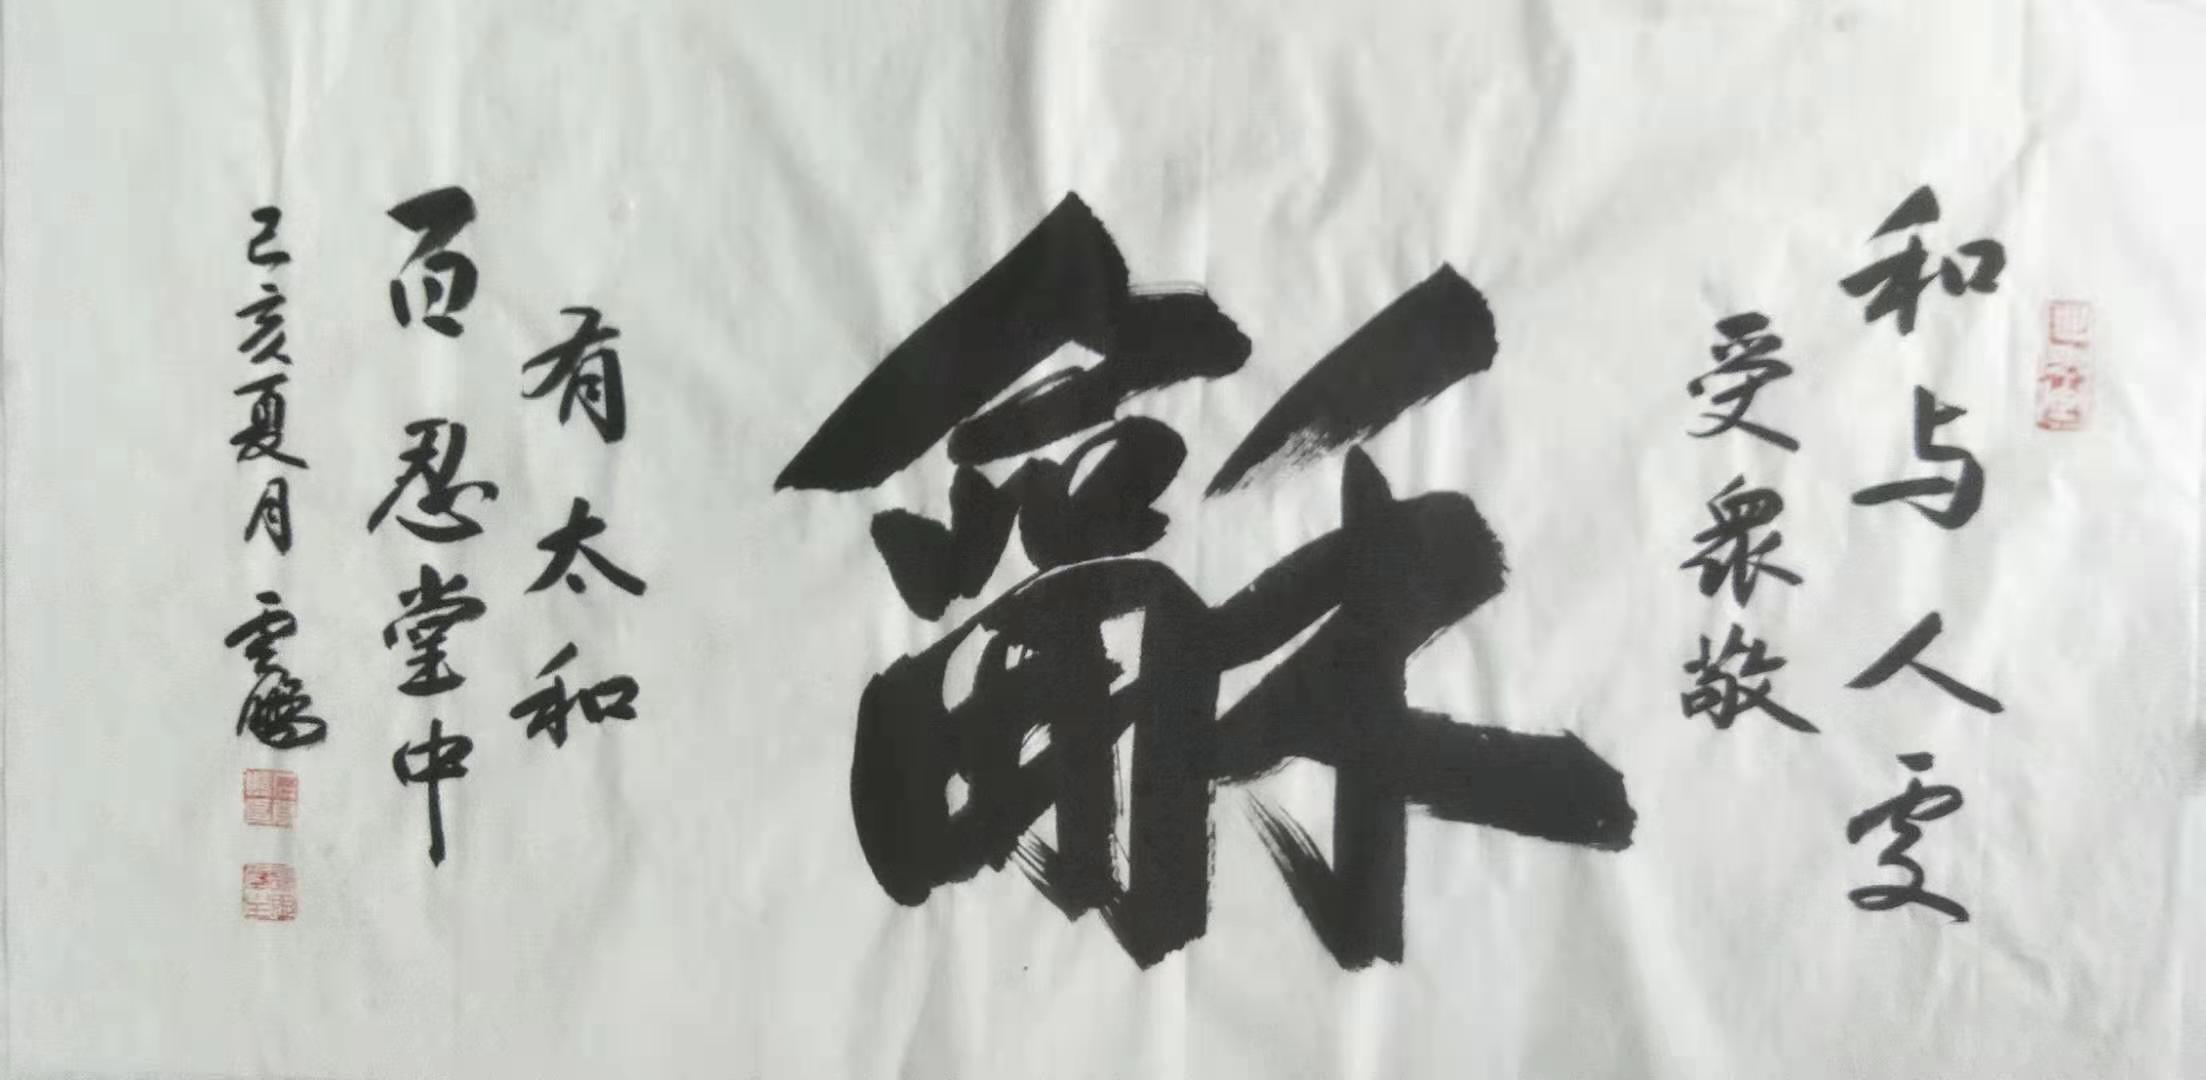 和与人處
受眾敬
龢
有太和
百忍堂中
己亥夏月 雲鵬